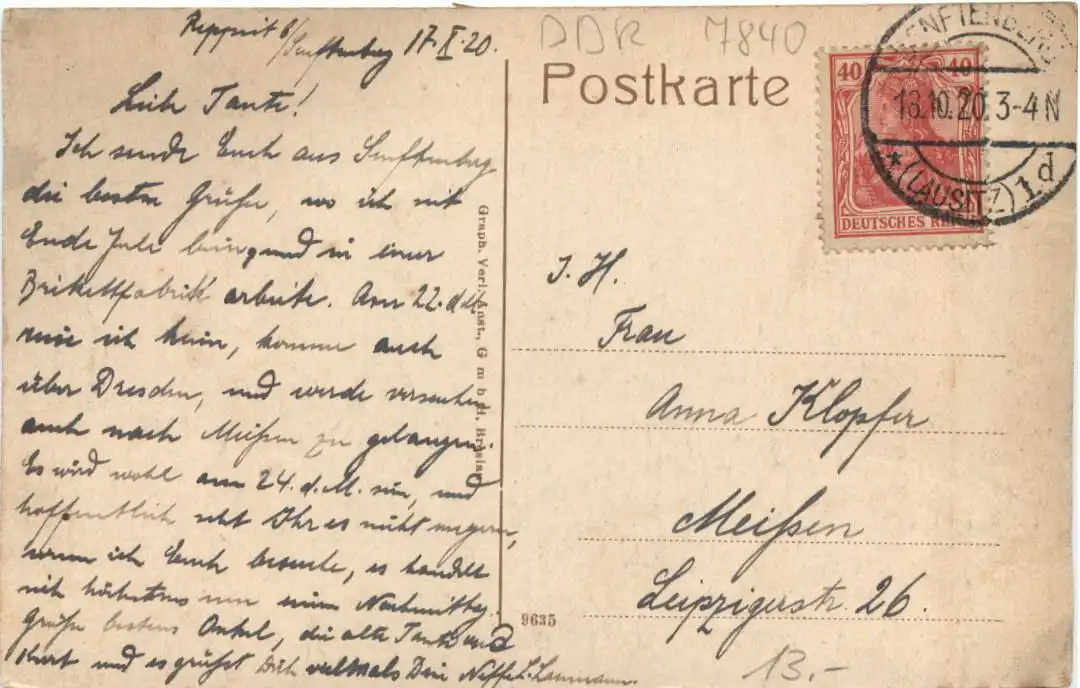 Reppist b/
Senftenberg 17.X.20.
Liebe Tante!
Ich sende Euch aus Senftenberg
die besten Grüße, wo ich seit
Ende Juli bin und in einer
Brikettfabrik arbeite. Am 22. d. M.
reise ich heim, komme auch
über Dresden, und werde versuchen
auch nach Meißen zu gelangen.
Es wird wohl am 24. d. M. sein, und
hoffentlich seht Ihr es nicht ungern,
wenn ich Euch besuche, es handelt
sich höchstens um einen Nachmittag.
Grüße bestens Onkel, die alte Tante und
Kurt und es grüßt Dich vielmals Dein Neffe
DDR 7840
Postkarte
40 40
DEUTSCHES REICH
SENFTENBERG
13.10.20. 3-4 N
* (LAUSITZ) 1 d
Graph. Verl. Anst., G m b H, Breslau
I. H.
Frau
Anna Klopfer
Meißen
Leipzigerstr. 26.
9635
13.-